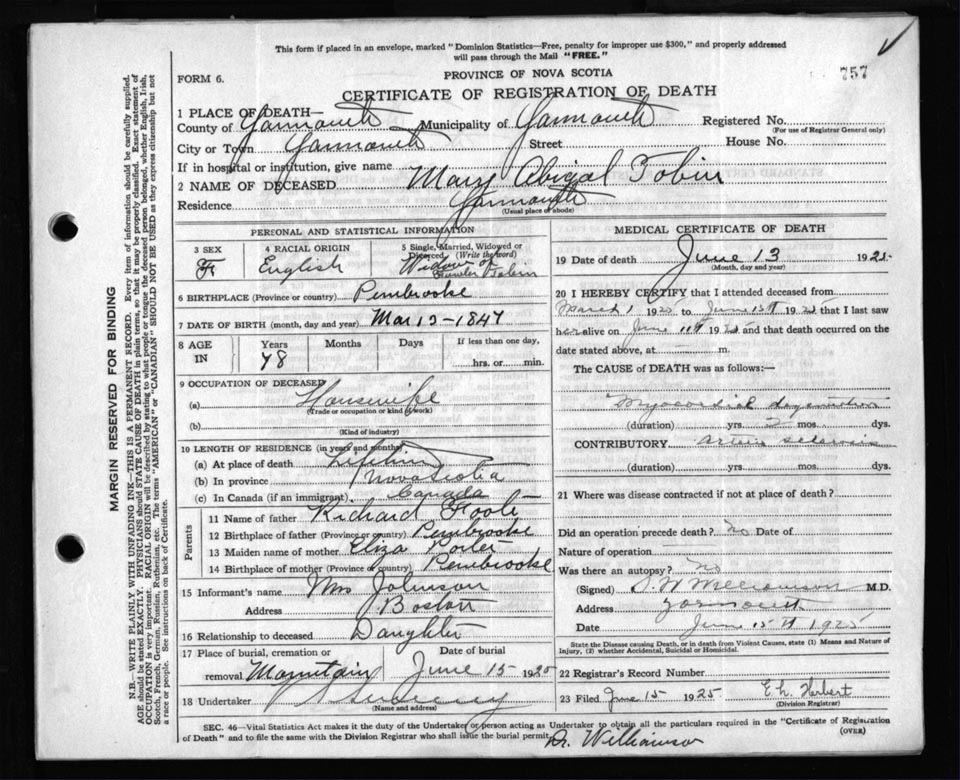 This form if placed in an envelope, marked "Dominion Statistics—Free, penalty for improper use $300," and properly addressed
will pass through the Mail "FREE."
757
FORM 6.
PROVINCE OF NOVA SCOTIA
CERTIFICATE OF REGISTRATION OF DEATH
1 PLACE OF DEATH—
County of Yarmouth Municipality of Yarmouth Registered No.
(For use of Registrar General only)
City or Town Yarmouth Street House No.
If in hospital or institution, give name
2 NAME OF DECEASED Mary Abigal Tobin
Residence Yarmouth
(Usual place of abode)
PERSONAL AND STATISTICAL INFORMATION
3 SEX
F
4 RACIAL ORIGIN
English
5 Single, Married, Widowed or
Divorced, (Write the word)
Widow of
Tobin
6 BIRTHPLACE (Province or country) Pembrooke
7 DATE OF BIRTH (month, day and year) Mar 13-1847
8 AGE IN
Years Months Days If less than one day,
78
hrs. or min.
9 OCCUPATION OF DECEASED
(a) Housewife
(Trade or occupation or kind of work)
(b)
(Kind of industry)
10 LENGTH OF RESIDENCE (in years and months)
(a) At place of death Lifetime
(b) In province Nova Scotia
(c) In Canada (if an immigrant) Canada
Parents
11 Name of father Richard Foote
12 Birthplace of father (Province or country) Pembrooke
13 Maiden name of mother Eliza Porter
14 Birthplace of mother (Province or country) Pembrooke
15 Informant's name Mrs Johnson
Address Boston
16 Relationship to deceased Daughter
17 Place of burial, cremation or Date of burial
removal Mountain June 15 1925
18 Undertaker Sweeny
(Name and address)
MEDICAL CERTIFICATE OF DEATH
19 Date of death June 13 1925
(Month, day and year)
20 I HEREBY CERTIFY that I attended deceased from
March 1 1925 to June 13th 1925 that I last saw
her alive on June 11th 1925 and that death occurred on the
date stated above, at m.
The CAUSE of DEATH was as follows:—
Myocardial degeneration
(duration) yrs. 2 mos. dys.
CONTRIBUTORY arterio sclerosis
(duration) yrs. mos. dys.
21 Where was disease contracted if not at place of death?
Did an operation precede death? no Date of
Nature of operation
Was there an autopsy? no
(Signed) Williamson M.D.
Address Yarmouth
Date June 15th 1925
State the Disease causing Death, or in death from Violent Causes, state (1) Means and Nature of
Injury, (2) whether Accidental, Suicidal or Homicidal.
22 Registrar's Record Number
23 Filed June 15 1925 E. h. Herbert
(Division Registrar)
SEC. 46—Vital Statistics Act makes it the duty of the Undertaker or person acting as Undertaker to obtain all the particulars required in the "Certificate of Registration
of Death" and to file the same with the Division Registrar who shall issue the burial permit.
(OVER)
Dr. Williamson
MARGIN RESERVED FOR BINDING
N.B.—WRITE PLAINLY WITH UNFADING INK—THIS IS A PERMANENT RECORD. Every item of information should be carefully supplied.
AGE should be stated EXACTLY. PHYSICIANS should STATE CAUSE OF DEATH in plain terms, so that it may be properly classified. Exact statement of
OCCUPATION is very important. RACIAL ORIGIN will be described by stating to what people or tongue the deceased person belonged, whether English, Irish,
Scotch, French, German, Russian, Ruthenian, etc. The terms "AMERICAN" or "CANADIAN" SHOULD NOT BE USED as they express citizenship but not
a race or people. See instructions on back of Certificate.